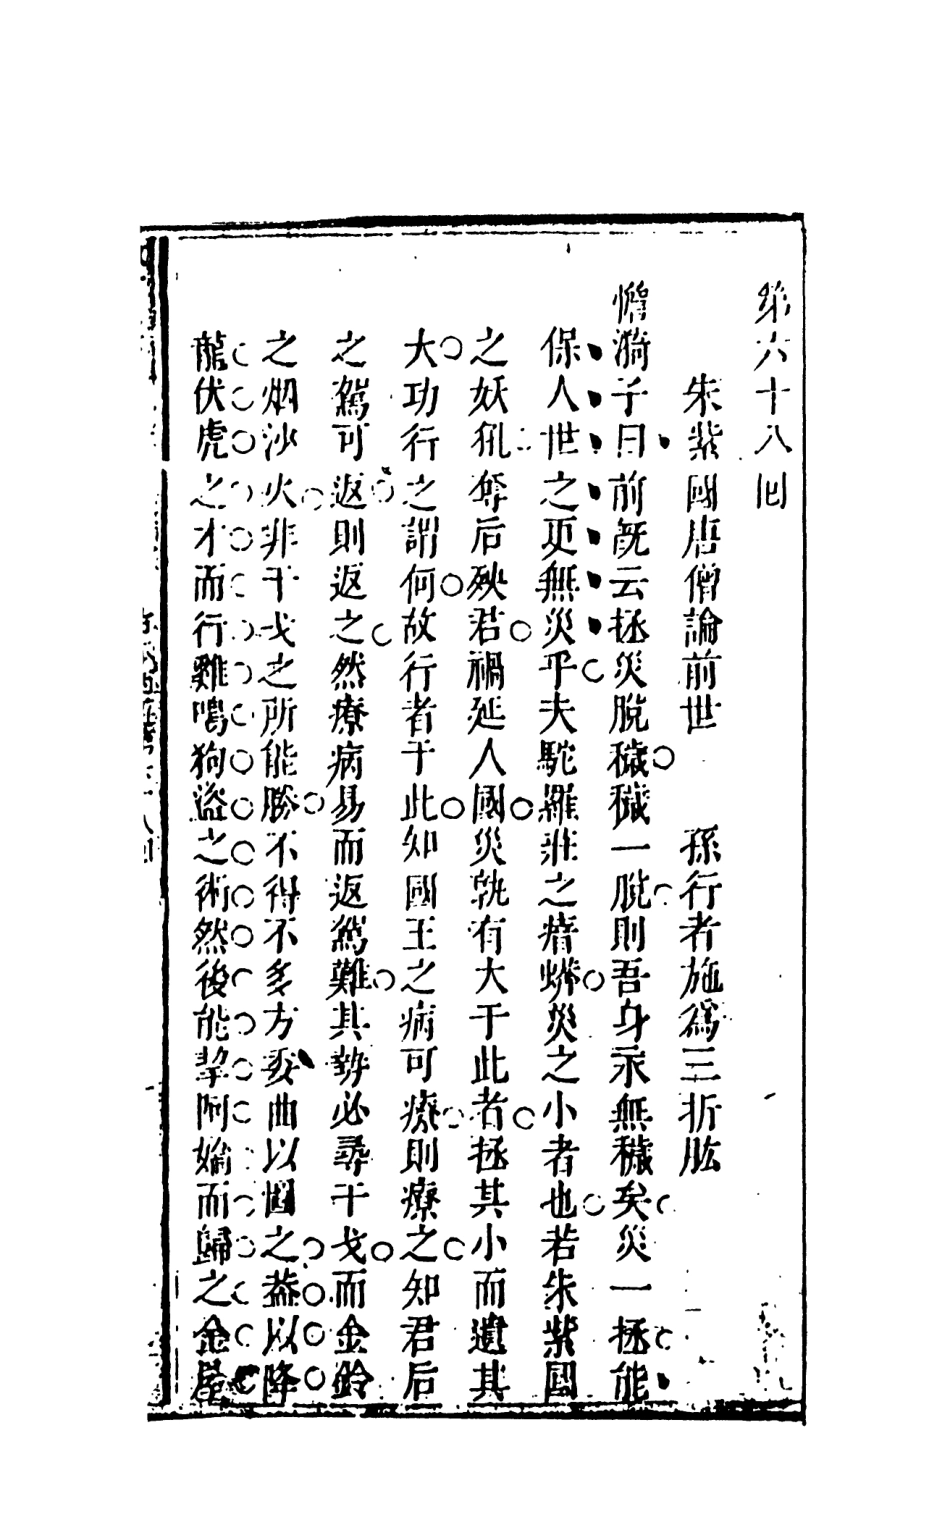 第六十八回
朱紫國唐僧論前世　孫行者施為三折肱
憺漪子曰前旣云拯災脫穢穢一脫則吾身永無穢矣災一拯能
保人世之更無災乎夫駝羅莊之瘴蟒災之小者也若朱紫國
之妖犼奪后殃君禍延人國災孰有大于此者拯其小而遺其
大功行之謂何故行者于此知國王之病可療則療之知君后
之鴛可返則返之然療病易而返鴛難其勢必尋干戈而金鈴
之烟沙火非干戈之所能勝不得不多方委曲以圖之葢以降
龍伏虎之才而行雞鳴狗盜之術然後能挈阿嬌而歸之金屋